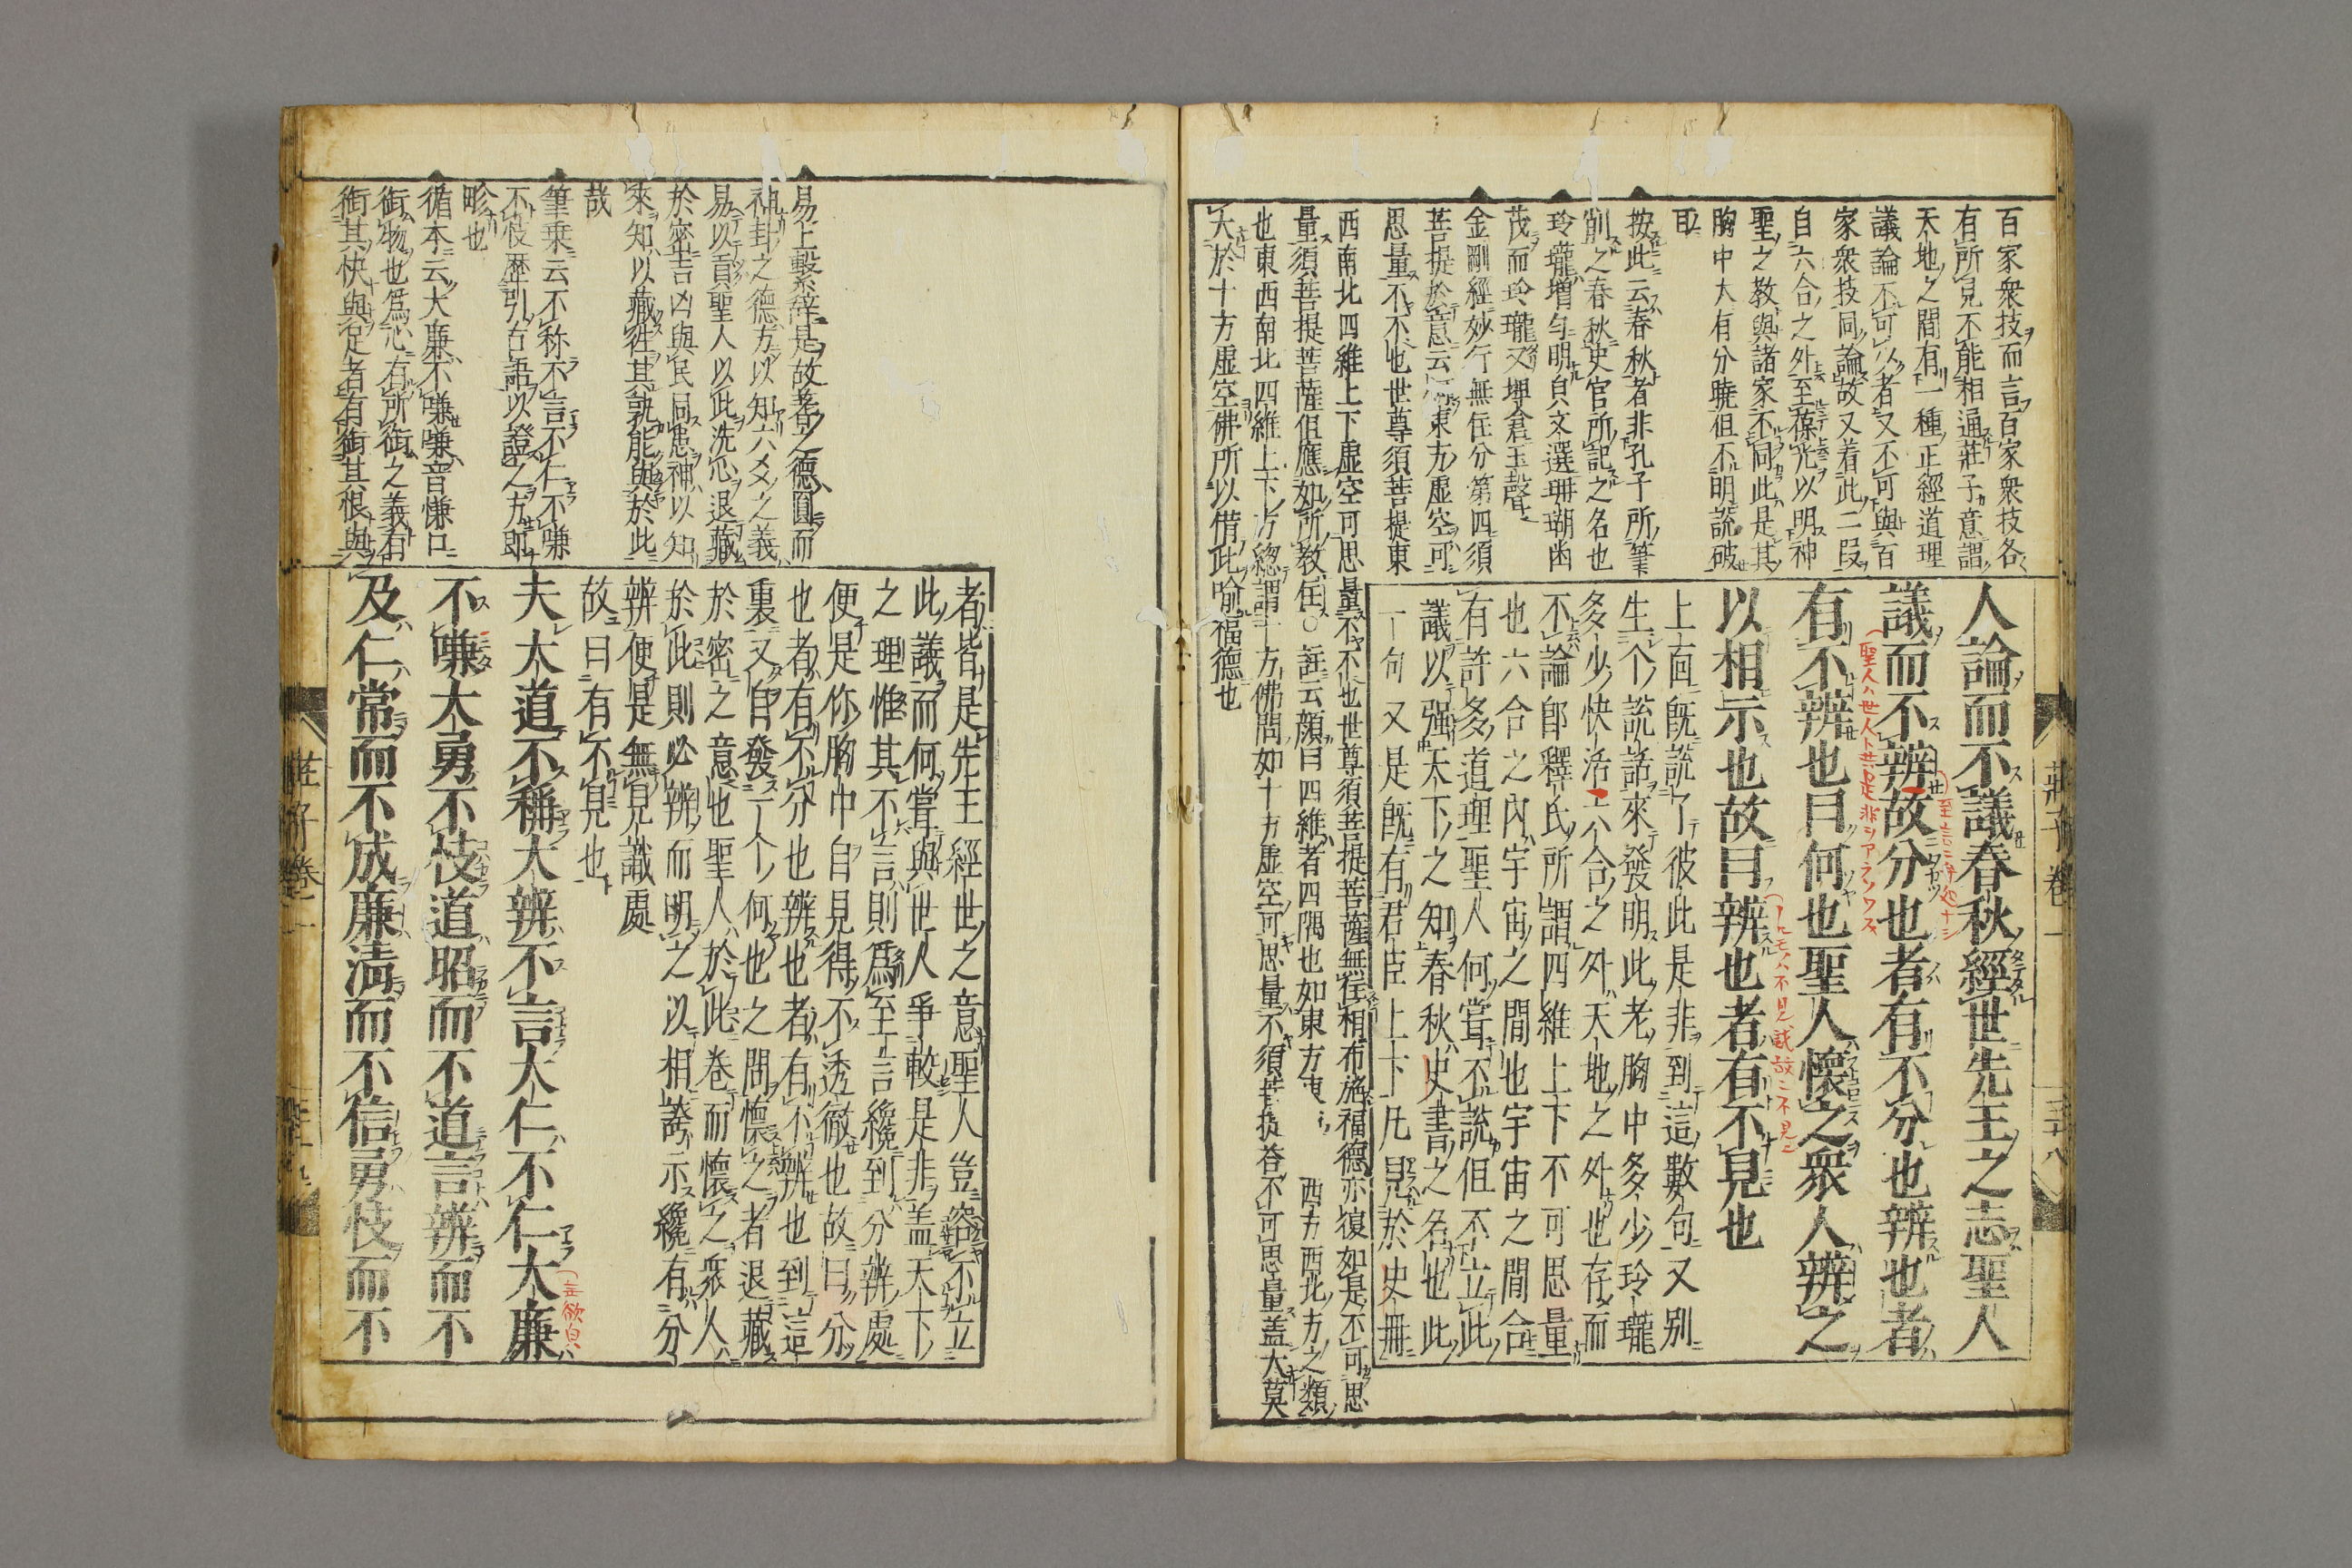 百家衆技而言百家衆技各
有所見不能相通莊子意謂
天地之間有一種正經道理
議論不可以者又不可與百
家衆技同論故又着此二段
自六合之外至葆光以明神
聖之教與諸家不同此是其
胸中大有分曉但不明說破
耳
按此云春秋者非孔子所筆
削之春秋史官所記之名也
玲瓏增勻明貞文選珊瑚幽
茂而玲瓏又埤倉玉聲
金剛經妙行無住分第四須
菩提於意云何東方虛空可
思量不不也世尊須菩提東
西南北四維上下虛空可思量不不也世尊須菩提菩薩無住相布施福德亦復如是不可思
量須菩提菩薩但應如所教住○註云顏曰四維者四隅也如東方東 西方西北方之類
也東西南北四維上下方總謂十方佛問如十方虛空可思量不須菩提答不可思量盖大莫
大於十方虛空佛所以借此喻福德也
人論而不議春秋經世先王之志聖人
議而不辨故分也者有不分也辨也者
有不辨也曰何也聖人懷之衆人辨之
以相示也故曰辨也者有不見也
上面既說了彼此是非到這數句又別
生一个說話來發明此老胸中多少玲瓏
多少快活六合之外天地之外也存而
不論郎釋氏所謂四維上下不可思量
也六合之內宇宙之間也宇宙之間合
有許多道理聖人何嘗不說但不立此
議以强天下之知春秋史書之名也此
一句又是既有君臣上下凡見於史冊
莊子卷一
三十八
易上繫辭是故蓍之德圓而
神卦之德方以知六爻之義
易以貢聖人以此洗心退藏
於密吉凶與民同患神以知
來知以藏徃其孰能與於此
哉
筆乗云不称不言不仁不嗛
不忮歷引古語以證之方郎
畛也
循本云大廉不嗛嗛音慊口
銜物也爲心有所銜之義有
銜其快與足者有銜其恨與
者皆是先王經世之意聖人豈容不立
此議而何嘗與世人爭較是非盖天下
之理惟其不言則爲至言纔到分辨處
便是你胸中自見得不透徹也故曰分
也者有不分也辨也者有不辨也到這
裏又自發一个何也之問懷之者退藏
於密之意也聖人於此卷而懷之衆人
於此則必辨而明之以相誇示纔有分
辨便是無見識處
故曰有不見也
夫大道不稱大辨不言大仁不仁大廉
不嗛大勇不忮道昭而不道言辨而不
及仁常而不成廉淸而不信勇忮而不
莊子卷一